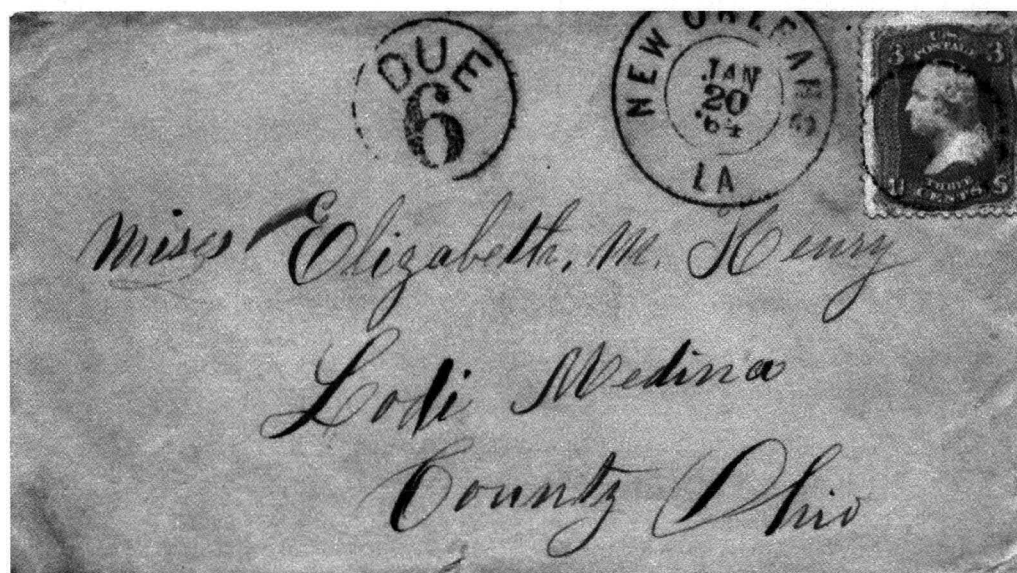 DUE
6
NEW ORLEANS
JAN
20
'64
LA
3 U.S. POSTAGE 3
U THREE CENTS S
Miss Elizabeth. M. Henry
Lodi Medina
County Ohio